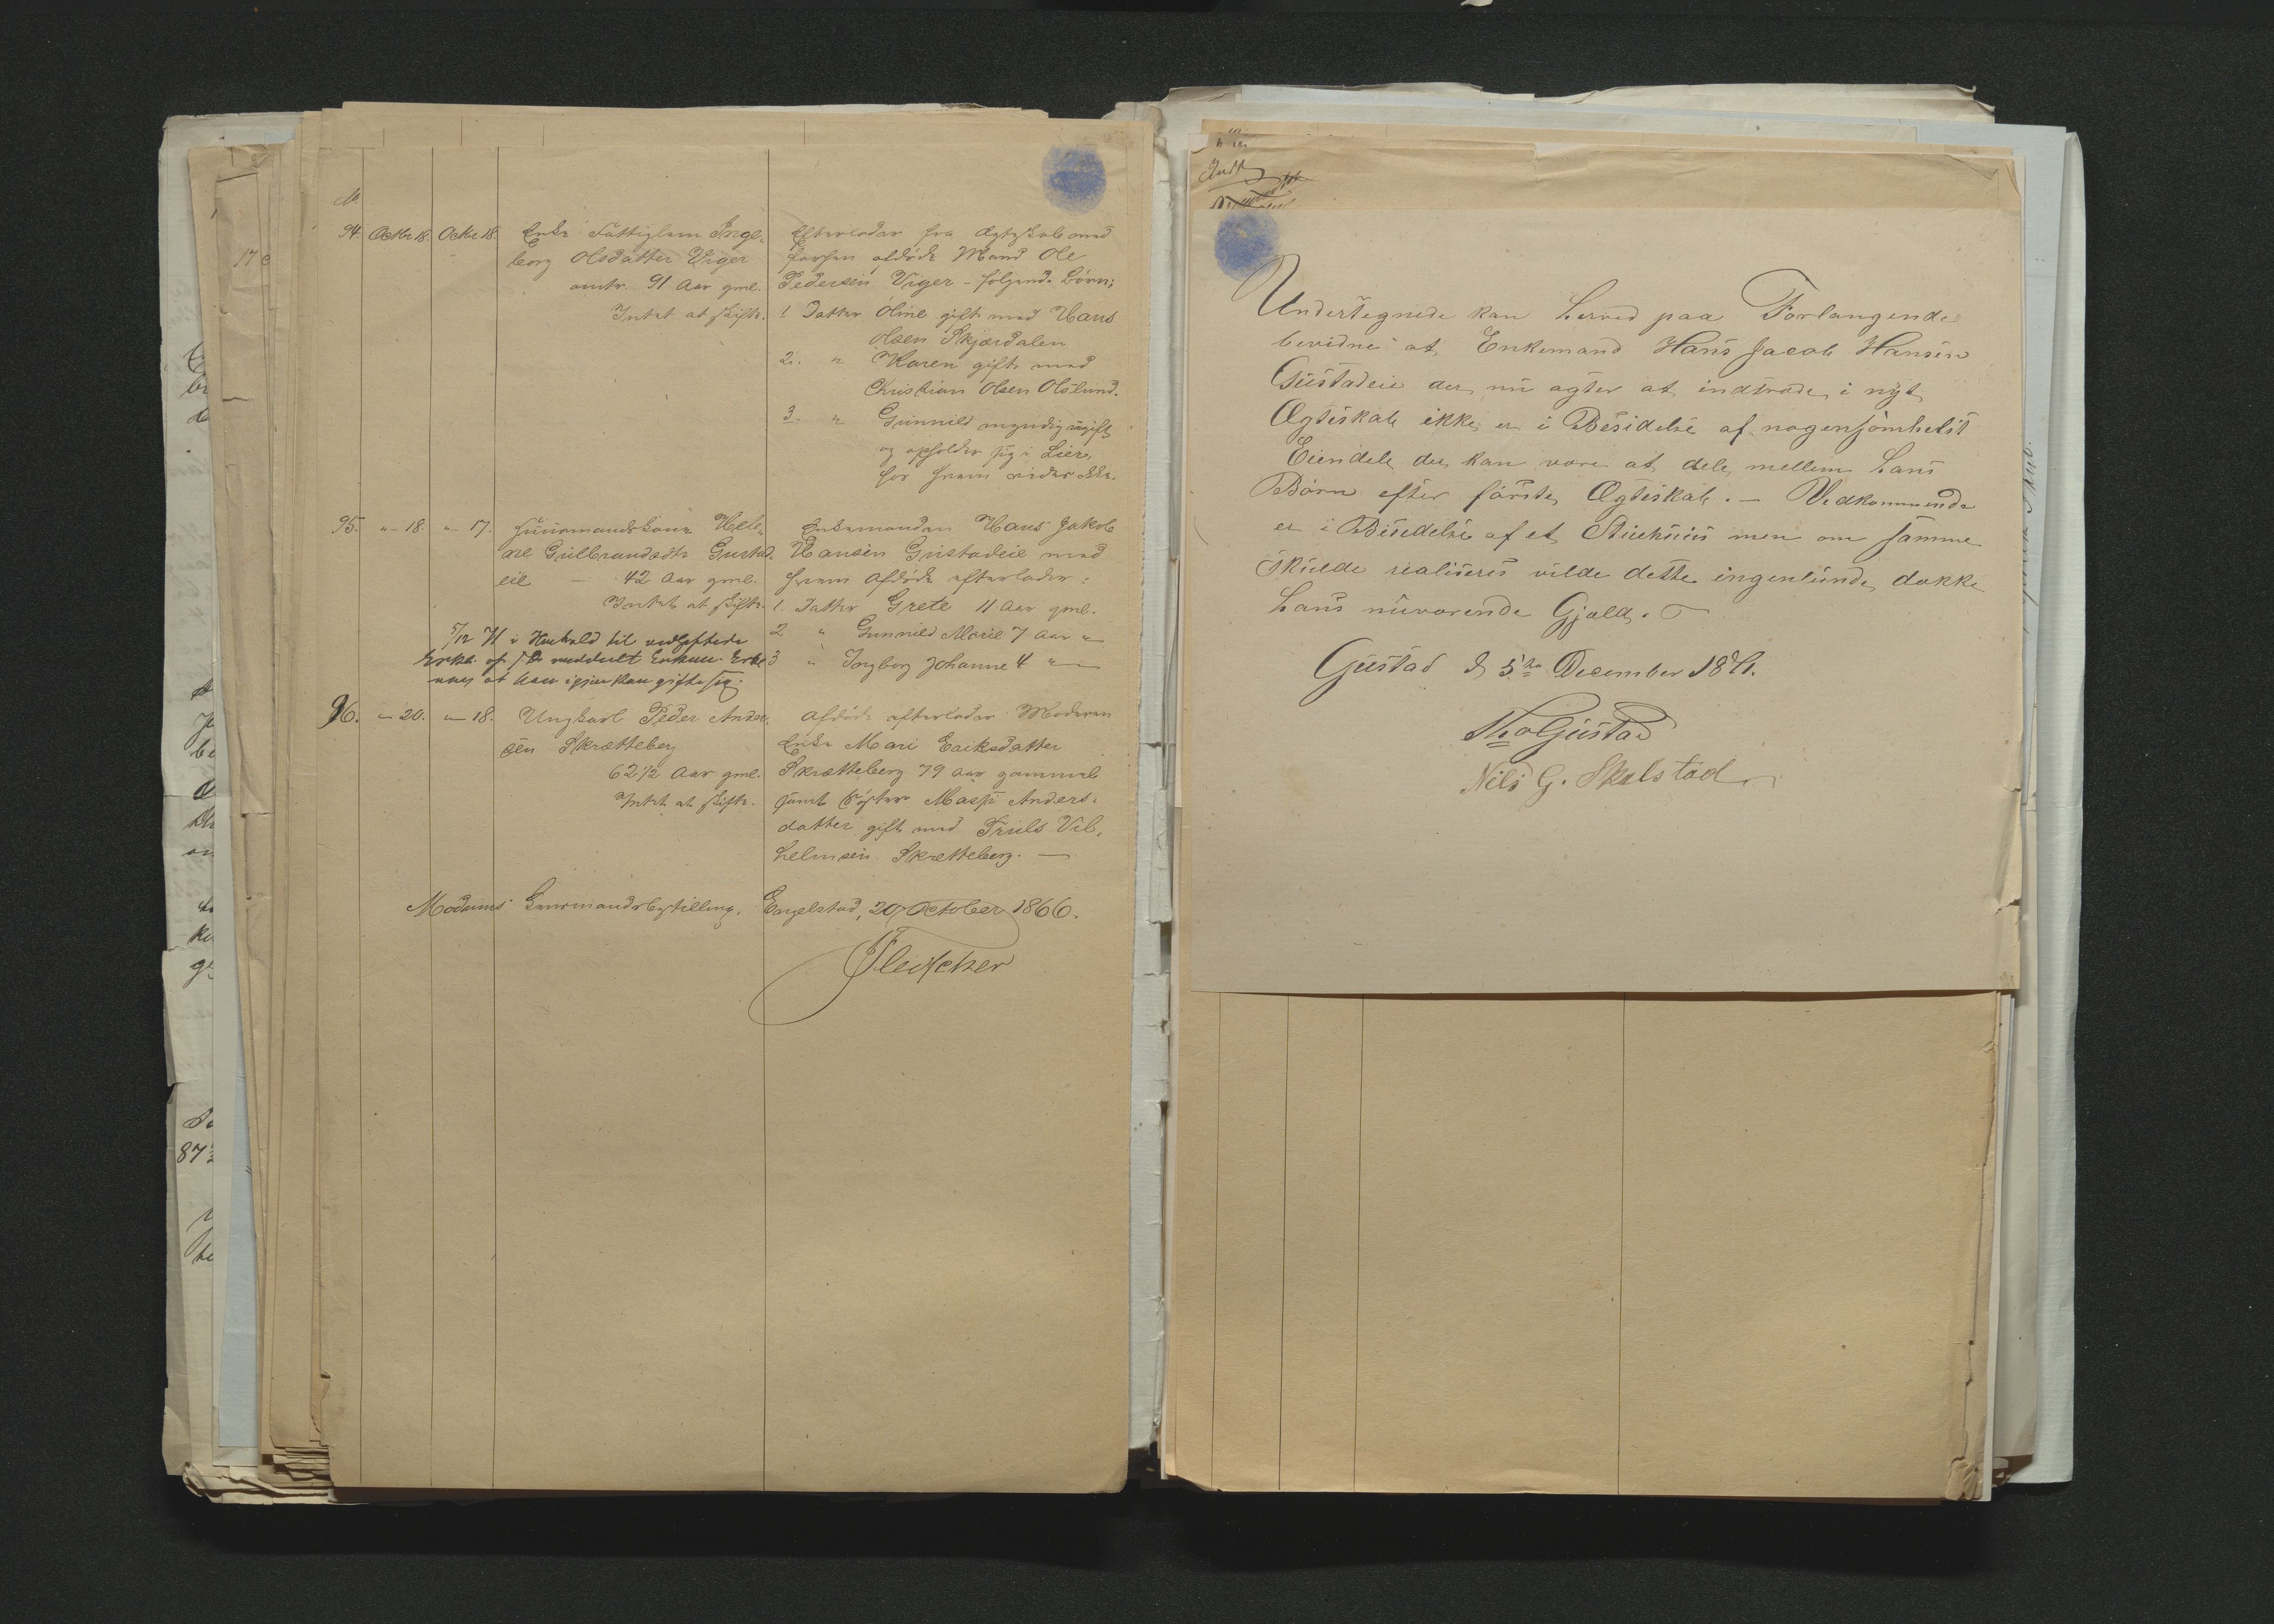 No.
94. Octbr 18. Octbr 18. Enke Fattiglem Inge-
borg Olsdatter Viger
omtr. 91 Aar gml.
Intet at skifte.
Efterlader fra Ægteskab med
forhen afdøde Mand Ole
Pedersen Viger – følgende Børn:
1. Datter Oline gift med Hans
Olsen Skjærdalen
2. " Karen gift med
Christian Olsen Øslund.
3. " Gunnild myndig ugift
og opholder sig i Lier,
hos hvem vides ikke.
95. " 18. " 17. Huusmandskone Hele-
ne Gulbrandsdtr Gustad-
eie – 42 Aar gml.
Intet at skifte.
Enkemanden Hans Jakob
Hansen Gustadeie med
hvem Afdøde efterlader:
1. Datter Grete 11 Aar gml.
2 " Gunnild Marie 7 Aar "
3 " Ingborg Johanne 4 "
5/12 71 i Henhold til vedheftede
Erkl. af s. D. meddeelt Enkem. Erkl
om at han igjen kan gifte sig.
96. " 20. " 18. Ungkarl Peder Ander-
sen Skrætteberg
62 1/2 Aar gml.
Intet at skifte.
Afdøde efterlader Moderen
Enke Mari Eriksdatter
Skrætteberg 79 Aar gammel
samt Søster Maren Anders-
datter gift med Truls Vil-
helmsen Skrætteberg. —
Modums Lensmandsbestilling, Engelstad, 20 October 1866.
Fleischer
Undertegnede kan herved paa Forlangende
bevidne at Enkemand Hans Jacob Hansen
Gustadeie der nu agter at indtræde i nyt
Ægteskab ikke er i Besidelse af nogensomhelst
Eiendele der kan være at dele mellem hans
Børn efter første Ægteskab. – Vedkommende
er i Besidelse af et Stuehuus men om samme
skulde realiseres vilde dette ingenlunde dække
hans nuværende Gjæld.
Gustad d 5te December 1871.
Th. O Gustad
Nils G. Skalstad